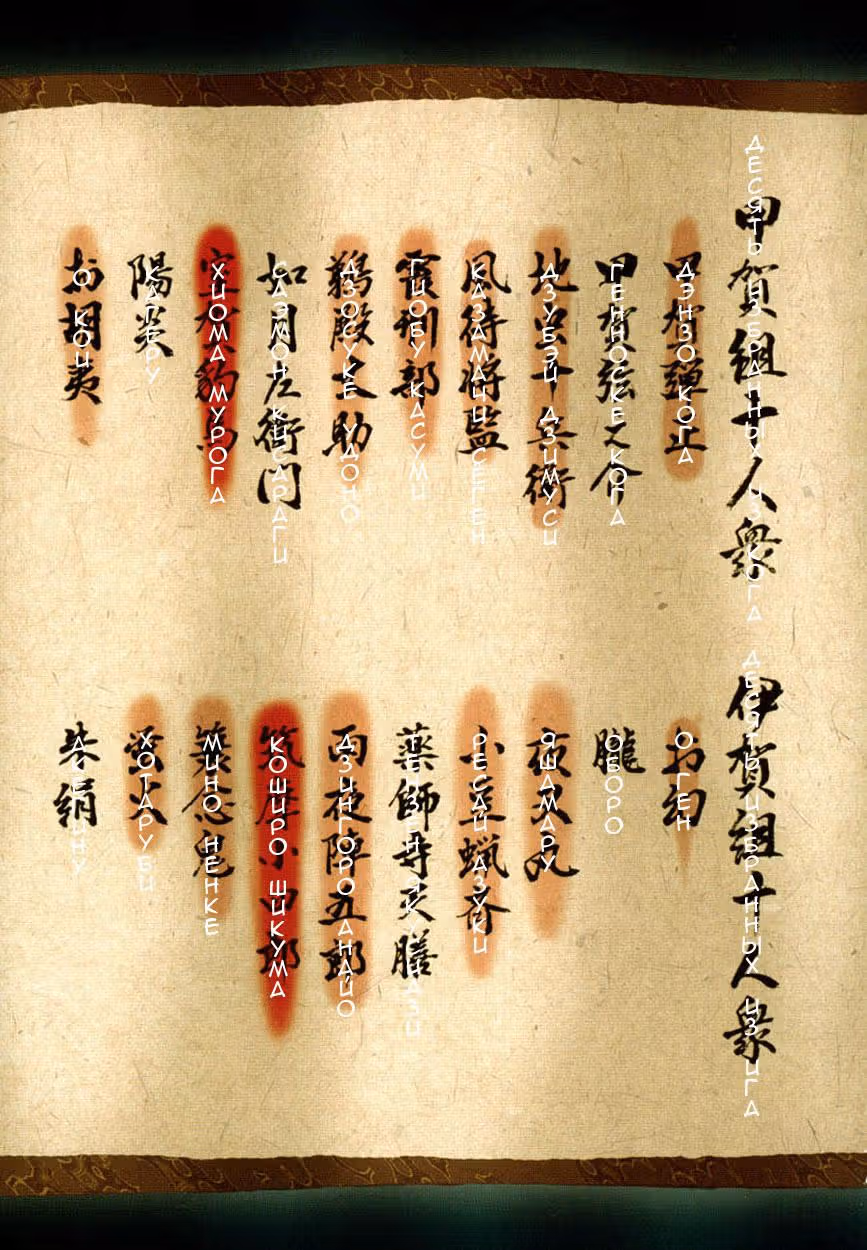 甲賀組十人衆
ДЕСЯТЬ ИЗБРАННЫХ ИЗ КОГА
甲賀彈正
ДЭНЗО КОГА
甲賀弦之介
ГЕННОСКЕ КОГА
地虫十兵衛
ДЗУБЭЙ ДЗИМУСИ
風待将監
КАЗАМАЦИ СЕГЕН
霞刑部
ГЙОБУ КАСУМИ
鵜殿丈助
ДЗОСУКЕ УДОНО
如月左衛門
САЭМОН КИСАРАГИ
室賀豹馬
ХЙОМА МУРОГА
陽炎
КАГЕРУ
お胡夷
О КОЙ
伊賀組十人衆
ДЕСЯТЬ ИЗБРАННЫХ ИЗ ИГА
お幻
О ГЕН
朧
ОБОРО
夜叉丸
ЯШАМАРУ
小豆蝋斎
РЕСАЙ АЗУКИ
薬師寺天膳
雨夜陣五郎
ДЗИНГОРО АМАЙО
筑摩小四郎
КОШИРО ШИКУМА
蓑念鬼
МИНО НЕНКЕ
蛍火
ХОТАРУБИ
朱絹